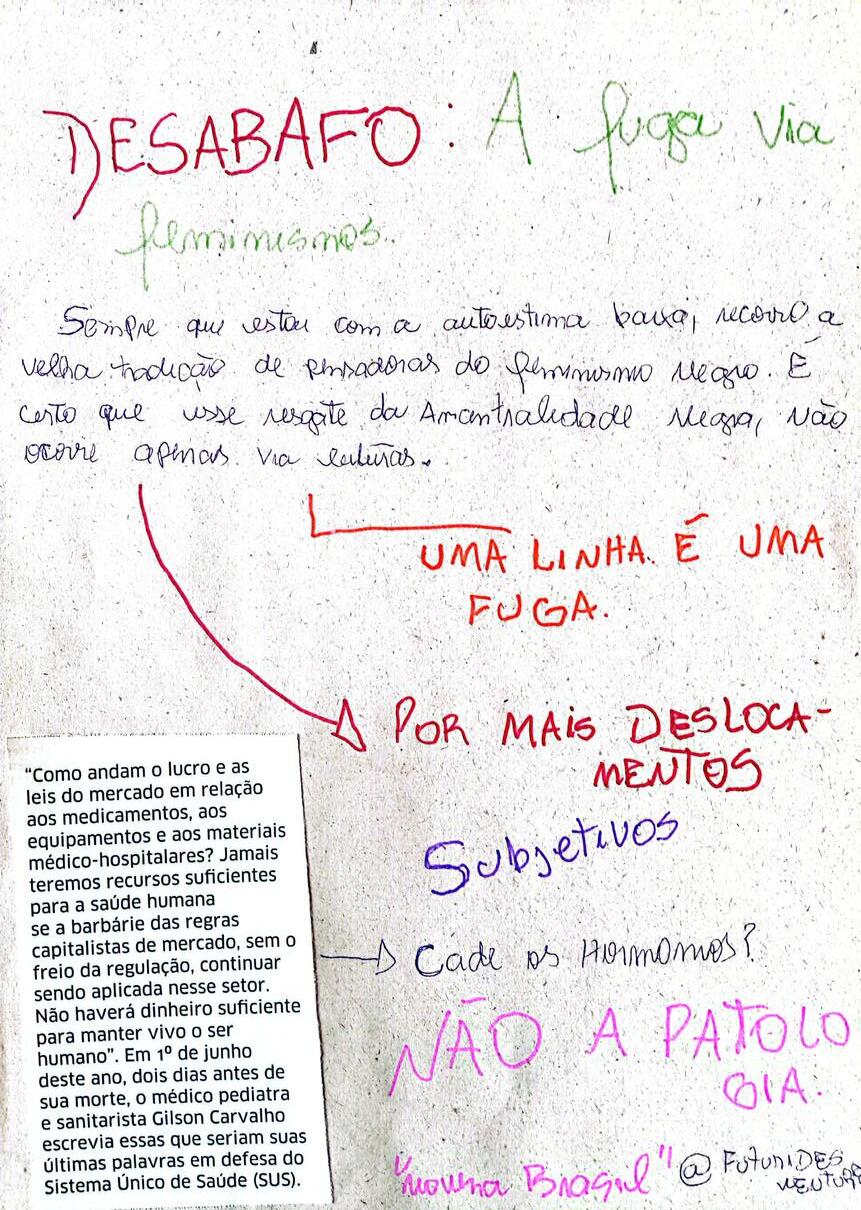 DESABAFO: A fuga via
feminismos.
Sempre que estou com a autoestima baixa, recorro a
velha tradição de pensadoras do feminismo negro. É
certo que esse resgate da Ancentralidade Negra, não
ocorre apenas via leituras.
UMA LINHA É UMA
FUGA.
POR MAIS DESLOCA-
MENTOS
Subjetivos
"Como andam o lucro e as
leis do mercado em relação
aos medicamentos, aos
equipamentos e aos materiais
médico-hospitalares? Jamais
teremos recursos suficientes
para a saúde humana
se a barbárie das regras
capitalistas de mercado, sem o
freio da regulação, continuar
sendo aplicada nesse setor.
Não haverá dinheiro suficiente
para manter vivo o ser
humano". Em 1º de junho
deste ano, dois dias antes de
sua morte, o médico pediatra
e sanitarista Gilson Carvalho
escrevia essas que seriam suas
últimas palavras em defesa do
Sistema Único de Saúde (SUS).
Cade os Hormonios?
NÃO A PATOLO
GIA.
Brasil" @